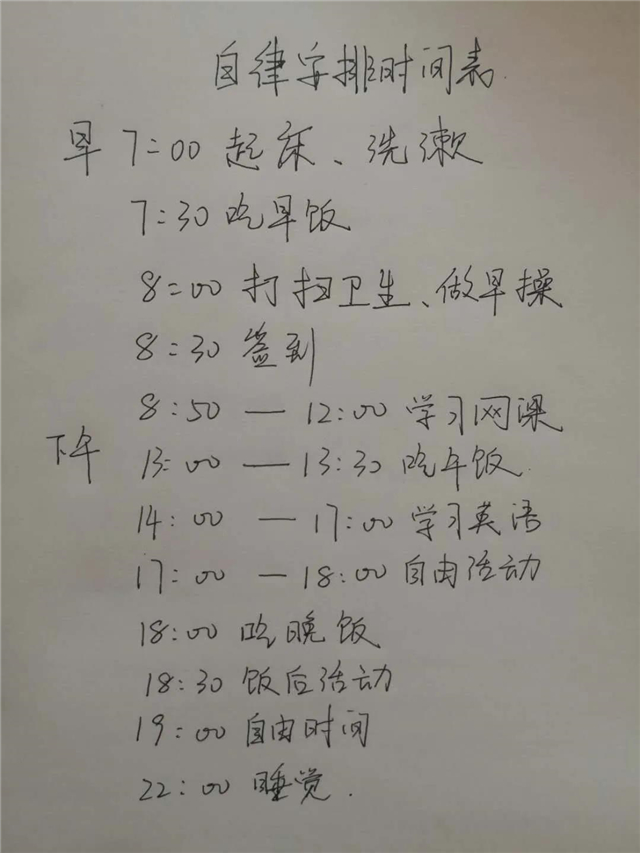 自律安排时间表.
早 7:00 起床、洗漱
7:30 吃早饭
8:00 打扫卫生、做早操
8:30 签到
8:50 — 12:00 学习网课
下午 13:00 — 13:30 吃午饭.
14:00 — 17:00 学习英语
17:00 — 18:00 自由活动
18:00 吃晚饭
18:30 饭后活动
19:00 自由时间
22:00 睡觉.